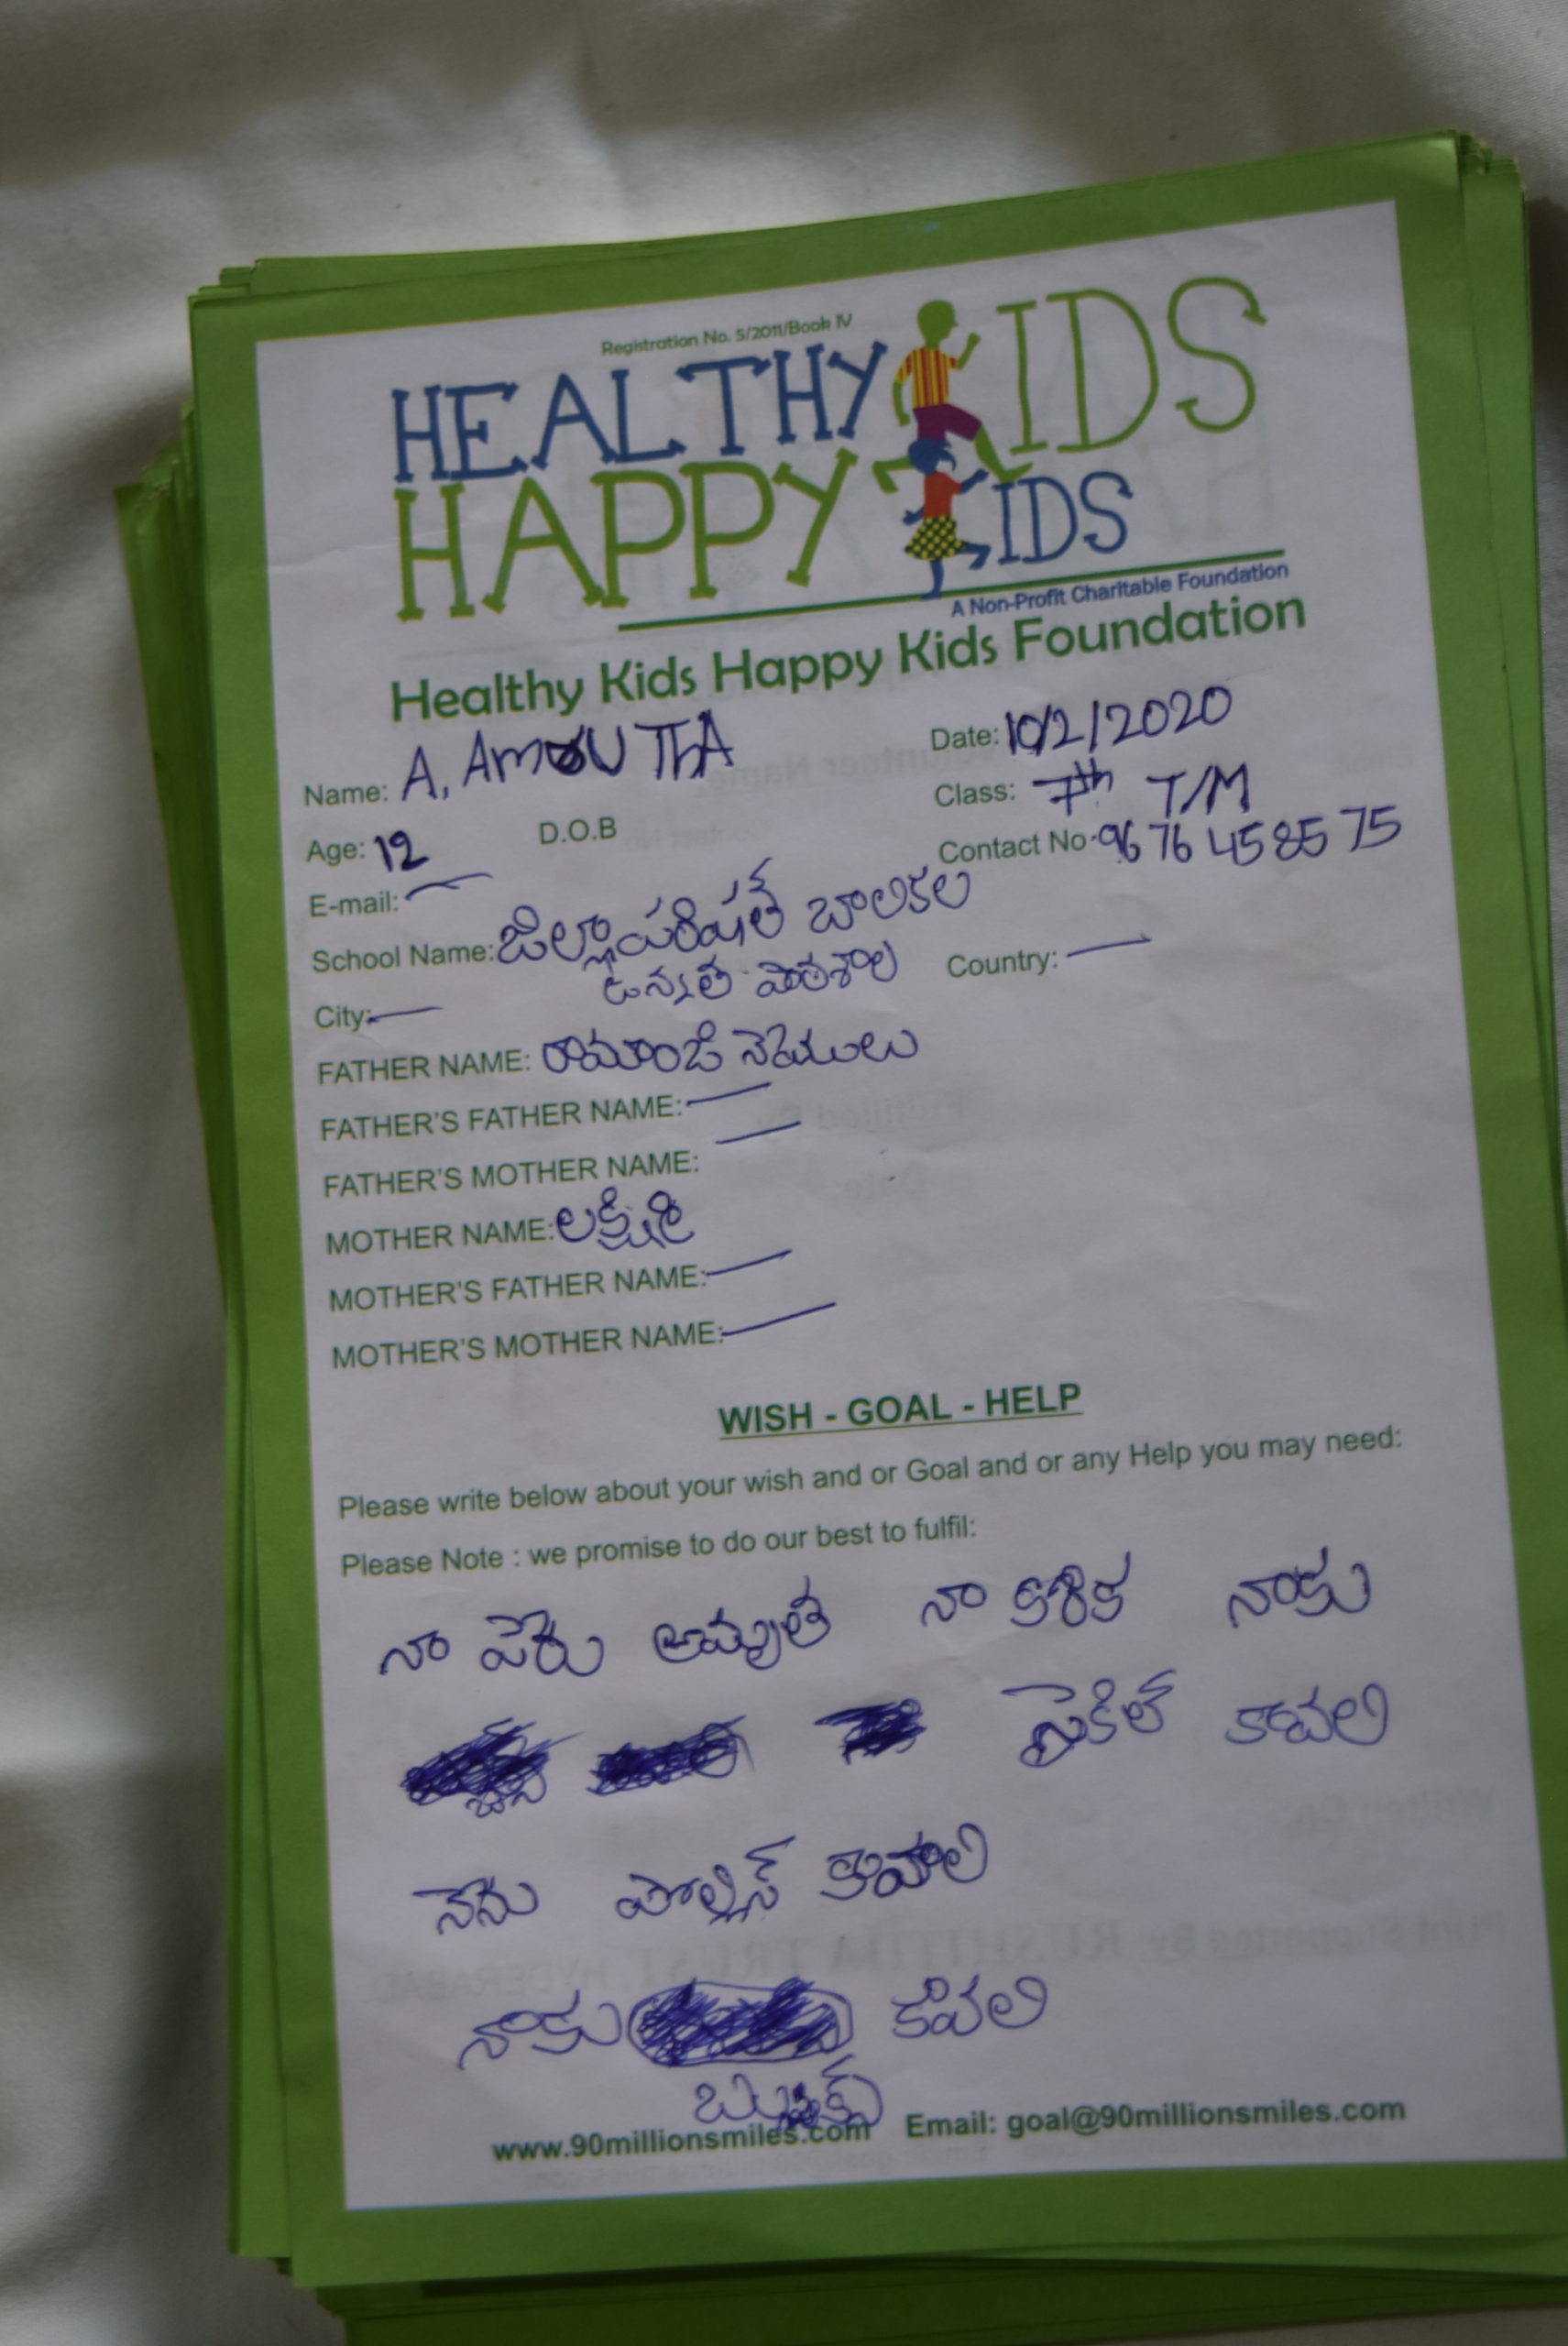 Registration No. 5/2011/Book IV
HEALTHY KIDS
HAPPY KIDS
A Non-Profit Charitable Foundation
Healthy Kids Happy Kids Foundation
Name: A, Date: 10/2/2020
Class: 7th T/M
Age: 12 D.O.B
Contact No 96 76 458575
E-mail: —
School Name: జిల్లాపరిషత్ బాలికల
ఉన్నత పాఠశాల
City: — Country: —
FATHER NAME: రామాంజి నేయులు
FATHER'S FATHER NAME: —
FATHER'S MOTHER NAME: —
MOTHER NAME: లక్ష్మి
MOTHER'S FATHER NAME: —
MOTHER'S MOTHER NAME: —
WISH - GOAL - HELP
Please write below about your wish and or Goal and or any Help you may need:
Please Note : we promise to do our best to fulfil:
నా పేరు అమృత నా కోరిక నాకు
సైకిల్ కావలి
నేను పోలీస్ కావాలి
నాకు కావలి
www.90millionsmiles.com Email: goal@90millionsmiles.com